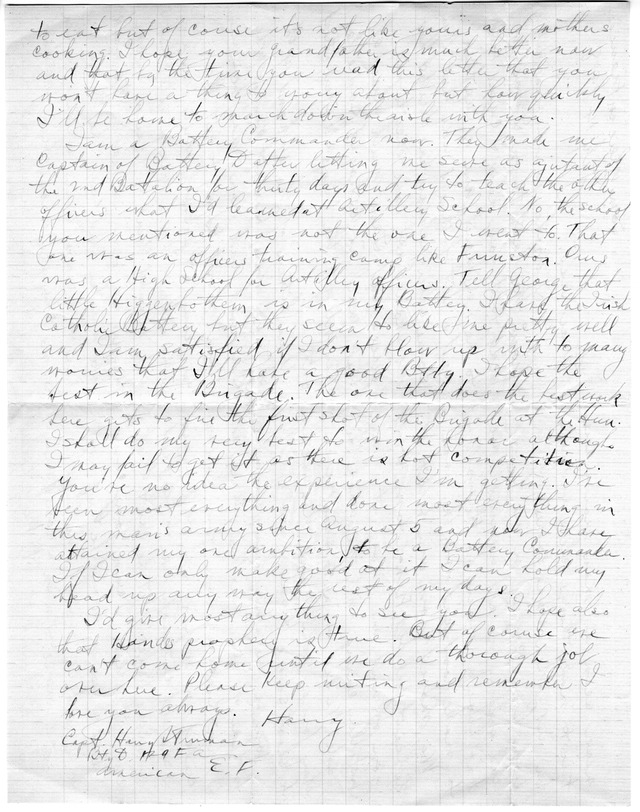 to eat but of couse it's not like yours and mothers
cooking. I hope your grandfather is much better now
and that by the time you read this letter that you
won't have a thing to worry about but how quickly
I'll be home to march down the aisle with you.
I am a Battery Commander now. They made me
Captain of Battery D after letting me serve as ajutant of
the 2nd Batalion for thirty days and try to teach the other
officers what I'd learned at Artillery School. No, the school
you mentioned was not the one I went to. That
one was an officers training camp like Funston. Ours
was a High School for Artilley officers. Tell George that
little Higgenbothem is in my Battey. I have the Irish
Catholic Battery but they seem to like me pretty well
and I am satisfied if I don't blow up with to many
worries that I'll have a good Btry. I hope the
best in the Brigade. The one that does the best work
here gets to fire the first shot of the Brigade at the Hun.
I shall do my very best to win the honor although
I may fail to get it as there is hot competition.
You've no idea the experience I'm getting. I've
been most everything and done most everything in
this man's army since August 5 and now I have
attained my one ambition to be a Battery Commander.
If I can only make good at it I can hold my
head up any way the rest of my days.
I'd give most anything to see you. I hope also
that prophecy is true. But of course we
can't come home until we do a thorough job
over here. Please keep writing and remember I
love you always. Harry.
Capt Harry S Truman
Bty D 129 F a
American E. F.